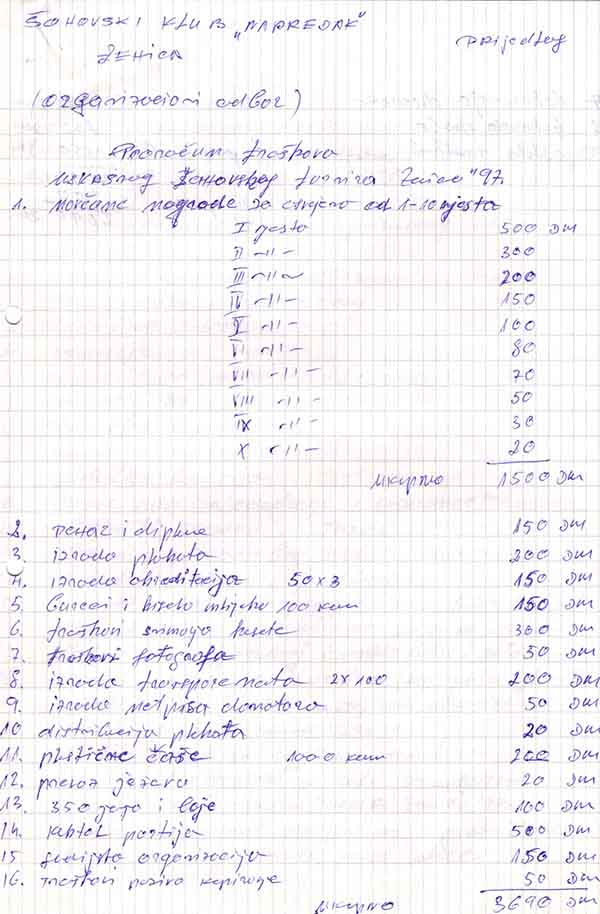 ŠAHOVSKI KLUB „NAPREDAK"
ZENICA
Prijedlog
(organizacioni odbor)
Proračun troškova
uskrsnog šahovskog turnira Zenica "97.
1. Novčane nagrade za osvojeno od 1-10 mjesta
I mjesto 500 DM
II -11- 300
III -11- 200
IV -11- 150
V -11- 100
VI -11- 80
VII -11- 70
VIII -11- 50
IX -11- 30
X -11- 20
ukupno 1500 DM
2. pehar i diplome 150 DM
3. izrada plakata 200 DM
4. izrada akreditacija 50 x 3 150 DM
5. i kiselo mlijeko 100 kom 150 DM
6. troškovi snimanja kasete 300 DM
7. troškovi fotografa 50 DM
8. izrada transparenata 2x100 200 DM
9. izrada natpisa 50 DM
10 distribucija plakata 20 DM
11. plastične čaše 1000 kom 200 DM
12. prevoz 20 DM
13. 350 jaja i boje 100 DM
14. partija 500 DM
15 organizacija 150 DM
16. troškovi poziva kopiranje 50 DM
ukupno 3690 DM